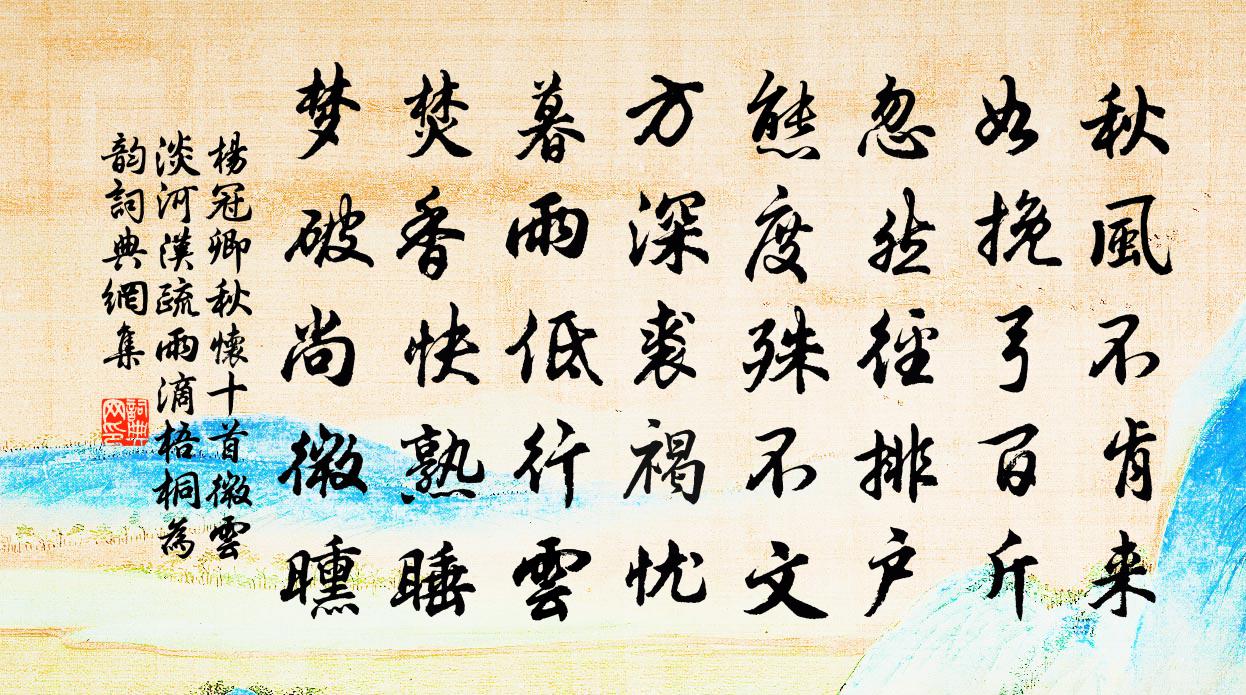 秋風不肯来
如挽弓百斤
忽然徑排户
態度殊不文
方深裘褐忧
暮雨低行雲
焚香快熟睡
梦破尚微曛
楊冠卿秋懷十首微雲
淡河漢疏雨滴梧桐為
韵詞典網集